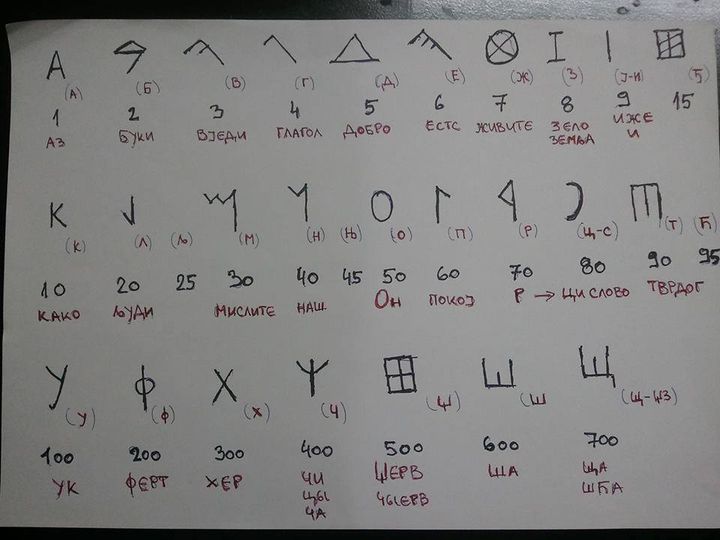 (А) (Б) (В) (Г) (Д) (Е) (Ж) (З) (Ј-И) (Ђ)
1 2 3 4 5 6 7 8 9 15
АЗ БУКИ ВЈЕДИ ГЛАГОЛ ДОБРО ЕСТС ЖИВИТЕ ЗЕЛО ИЖЕ
ЗЕМЉА И
(К) (Л) (Љ) (М) (Н) (Њ) (О) (П) (Р) (Ц-С) (Т) (Ћ)
10 20 25 30 40 45 50 60 70 80 90 95
КАКО ЉУДИ МИСЛИТЕ НАШ ОН ПОКОЈ Р → ЦИ СЛОВО ТВРДОГ
(У) (Ф) (Х) (Ч) (Џ) (Ш (Щ-ЏЗ)
100 200 300 400 500 600 700
УК ФЕРТ ХЕР ЧИ ЏЕРВ ША ЩА
ЦЫ ЧЫЕРВ ШЋА
ЧА